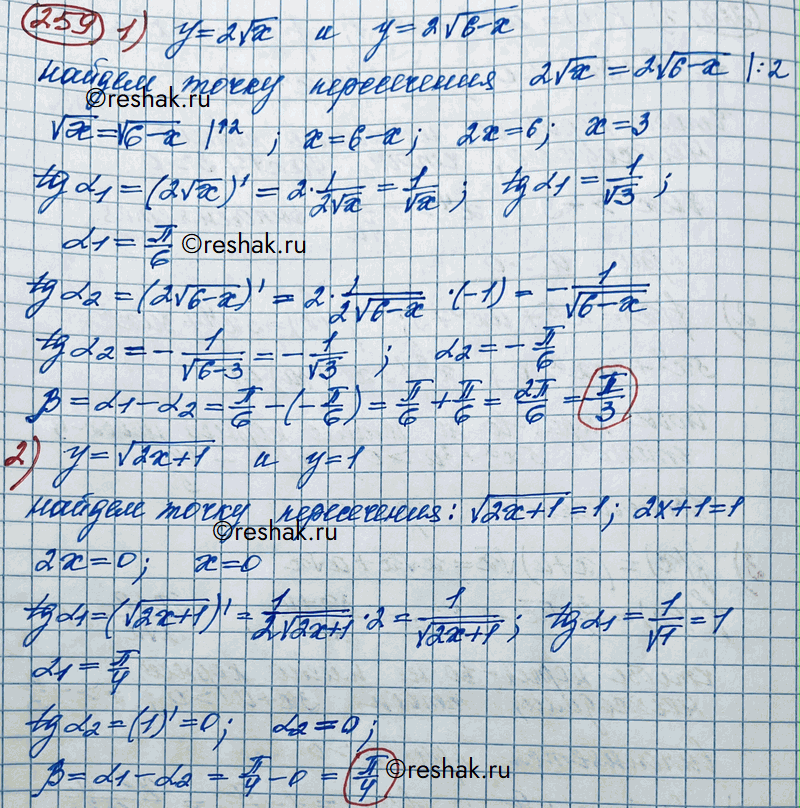 259 1) y=2√x и y=2√(6-x)
найдем точку пересечения 2√x = 2√(6-x) |:2
©reshak.ru
√x=√(6-x) |↑2 ; x=6-x; 2x=6; x=3
tg α1 = (2√x)' = 2·1/(2√x) = 1/√x ; tg α1 = 1/√3 ;
α1 = π/6 ©reshak.ru
tg α2 = (2√(6-x))' = 2·1/(2√(6-x)) ·(-1) = -1/√(6-x)
tg α2 = -1/√(6-3) = -1/√3 ; α2 = -π/6
β = α1 - α2 = π/6 - (-π/6) = π/6 + π/6 = 2π/6 = π/3
2) y=√(2x+1) и y=1
найдем точку пересечения: √(2x+1) = 1; 2x+1=1
©reshak.ru
2x=0; x=0
tg α1 = (√(2x+1))' = 1/(2√(2x+1)) ·2 = 1/√(2x+1) ; tg α1 = 1/√1 = 1
α1 = π/4
tg α2 = (1)' = 0; α2 = 0;
β = α1 - α2 = π/4 - 0 = π/4
©reshak.ru